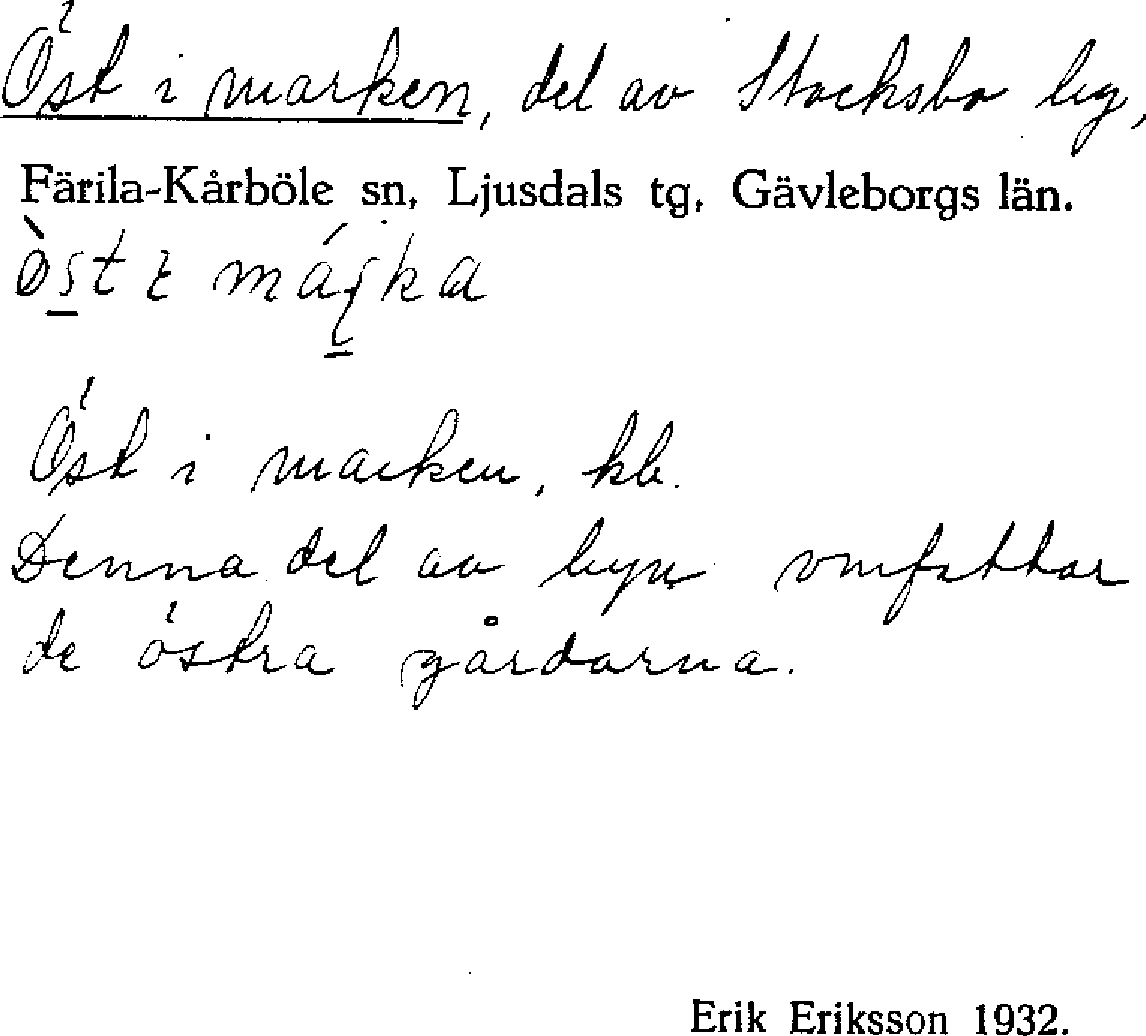 Öst i marken, del av Stocksbo by,
Färila-Kårböle sn, Ljusdals tg, Gävleborgs län.
Öst i marken, kb.
Denna del av byn omfattar
de östra gårdarna.
Erik Eriksson 1932.